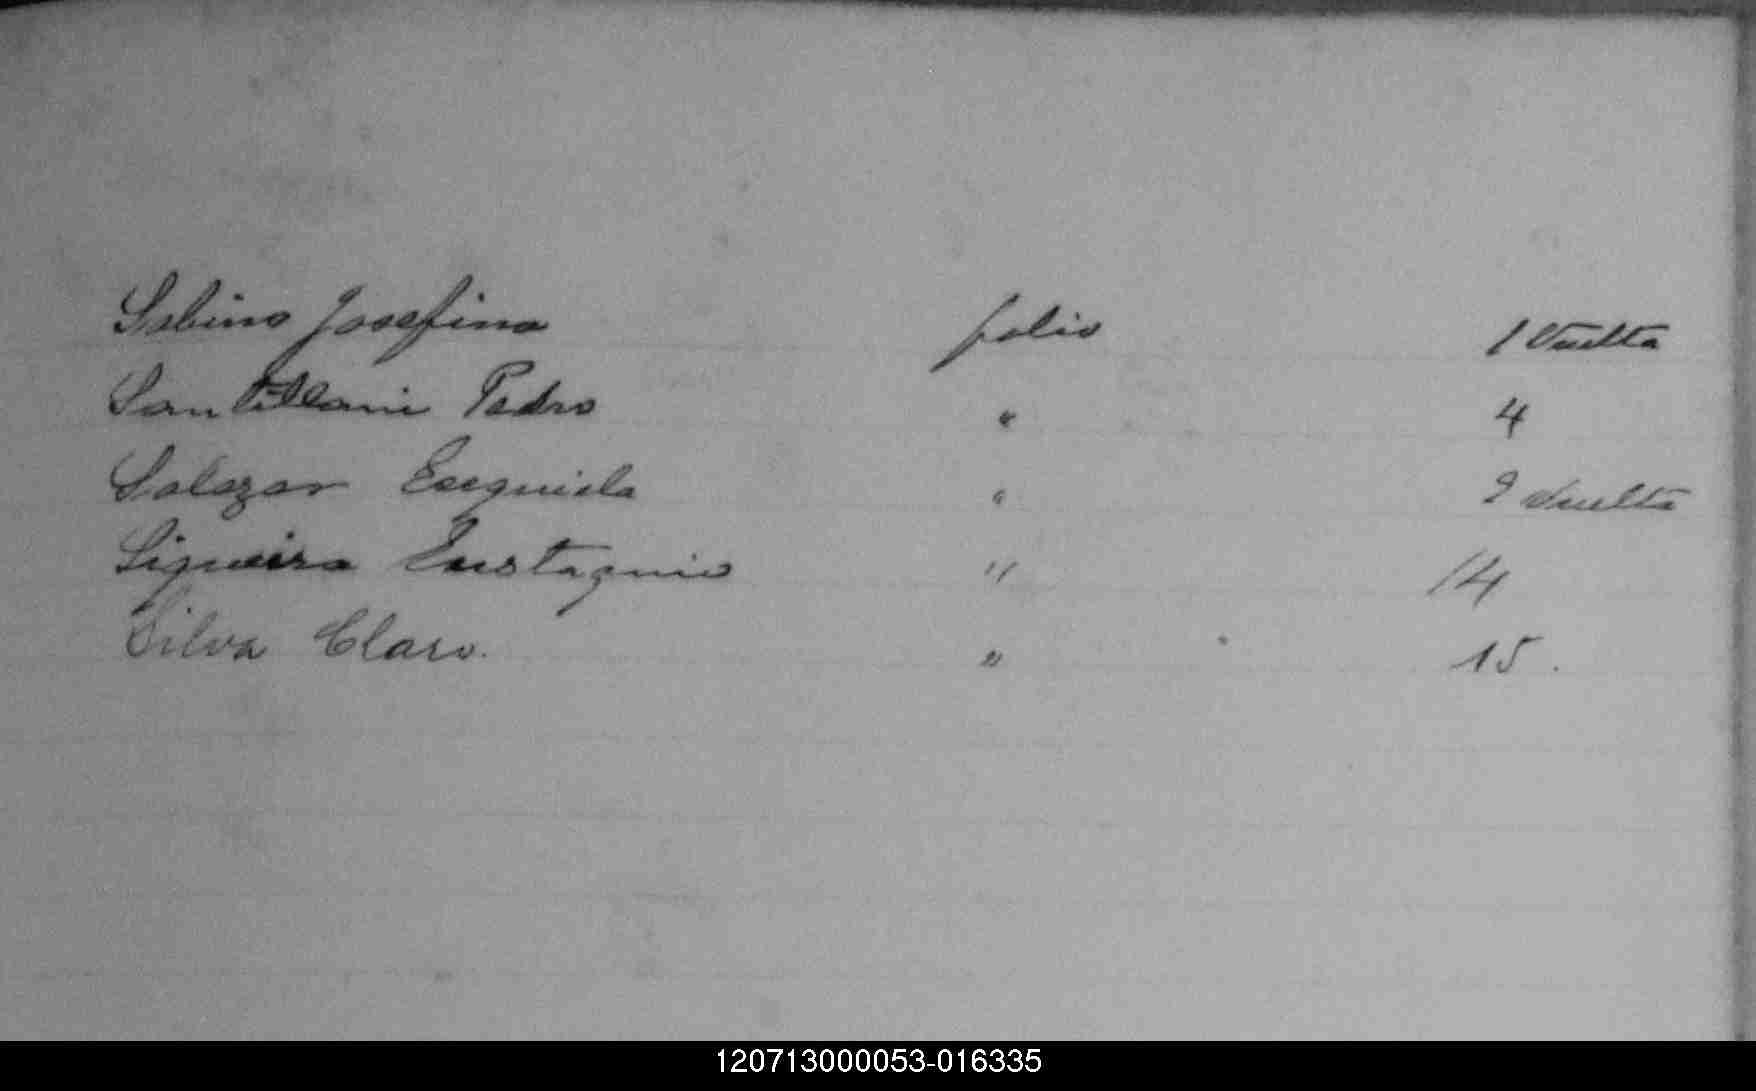 Sabino Josefina folio 1 Vuelta
Santillani Pedro " 4
Salazar Esequiela " 9 Vuelta
Siqueira Eustaquio " 14
Silva Claro. " 15.
120713000053-016335